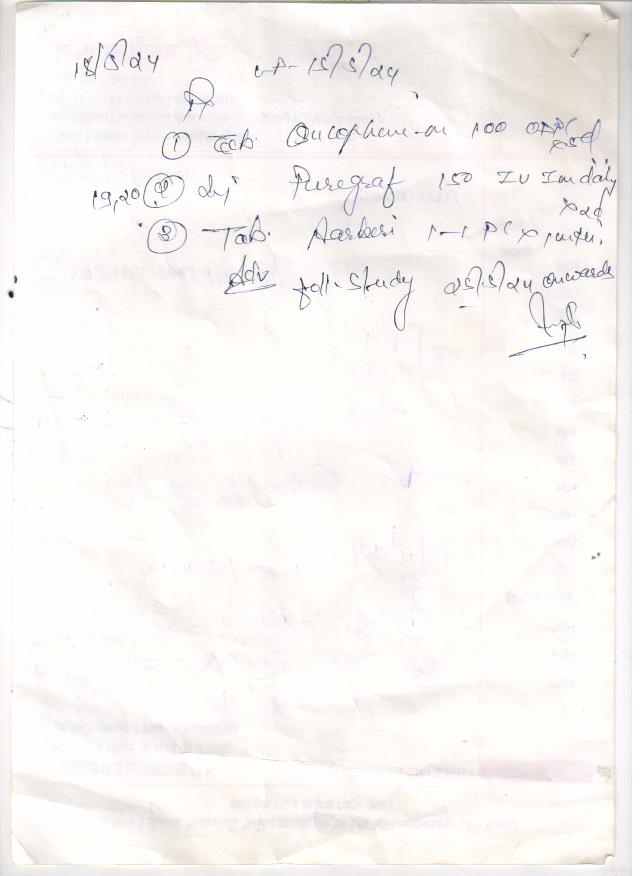 18/5/24 LMP - 15/5/24
Rx
① Tab. Oncophene-M 100 OD PC x 5d
19,20 ② Inj Puregraf 150 IU Im daily x 2d
③ Tab. 1-1 PC x
Adv foll. study 25/5/24 onwards